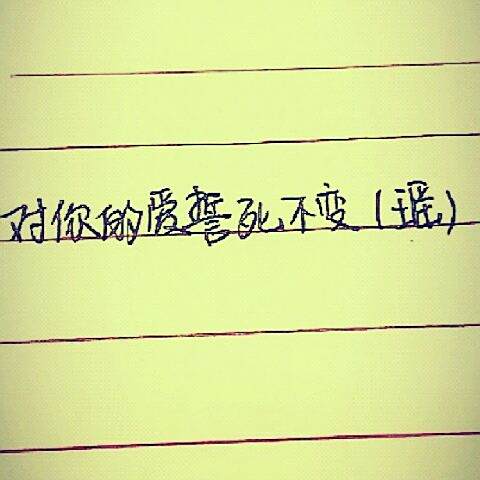 对你的爱誓死不变（瑶）